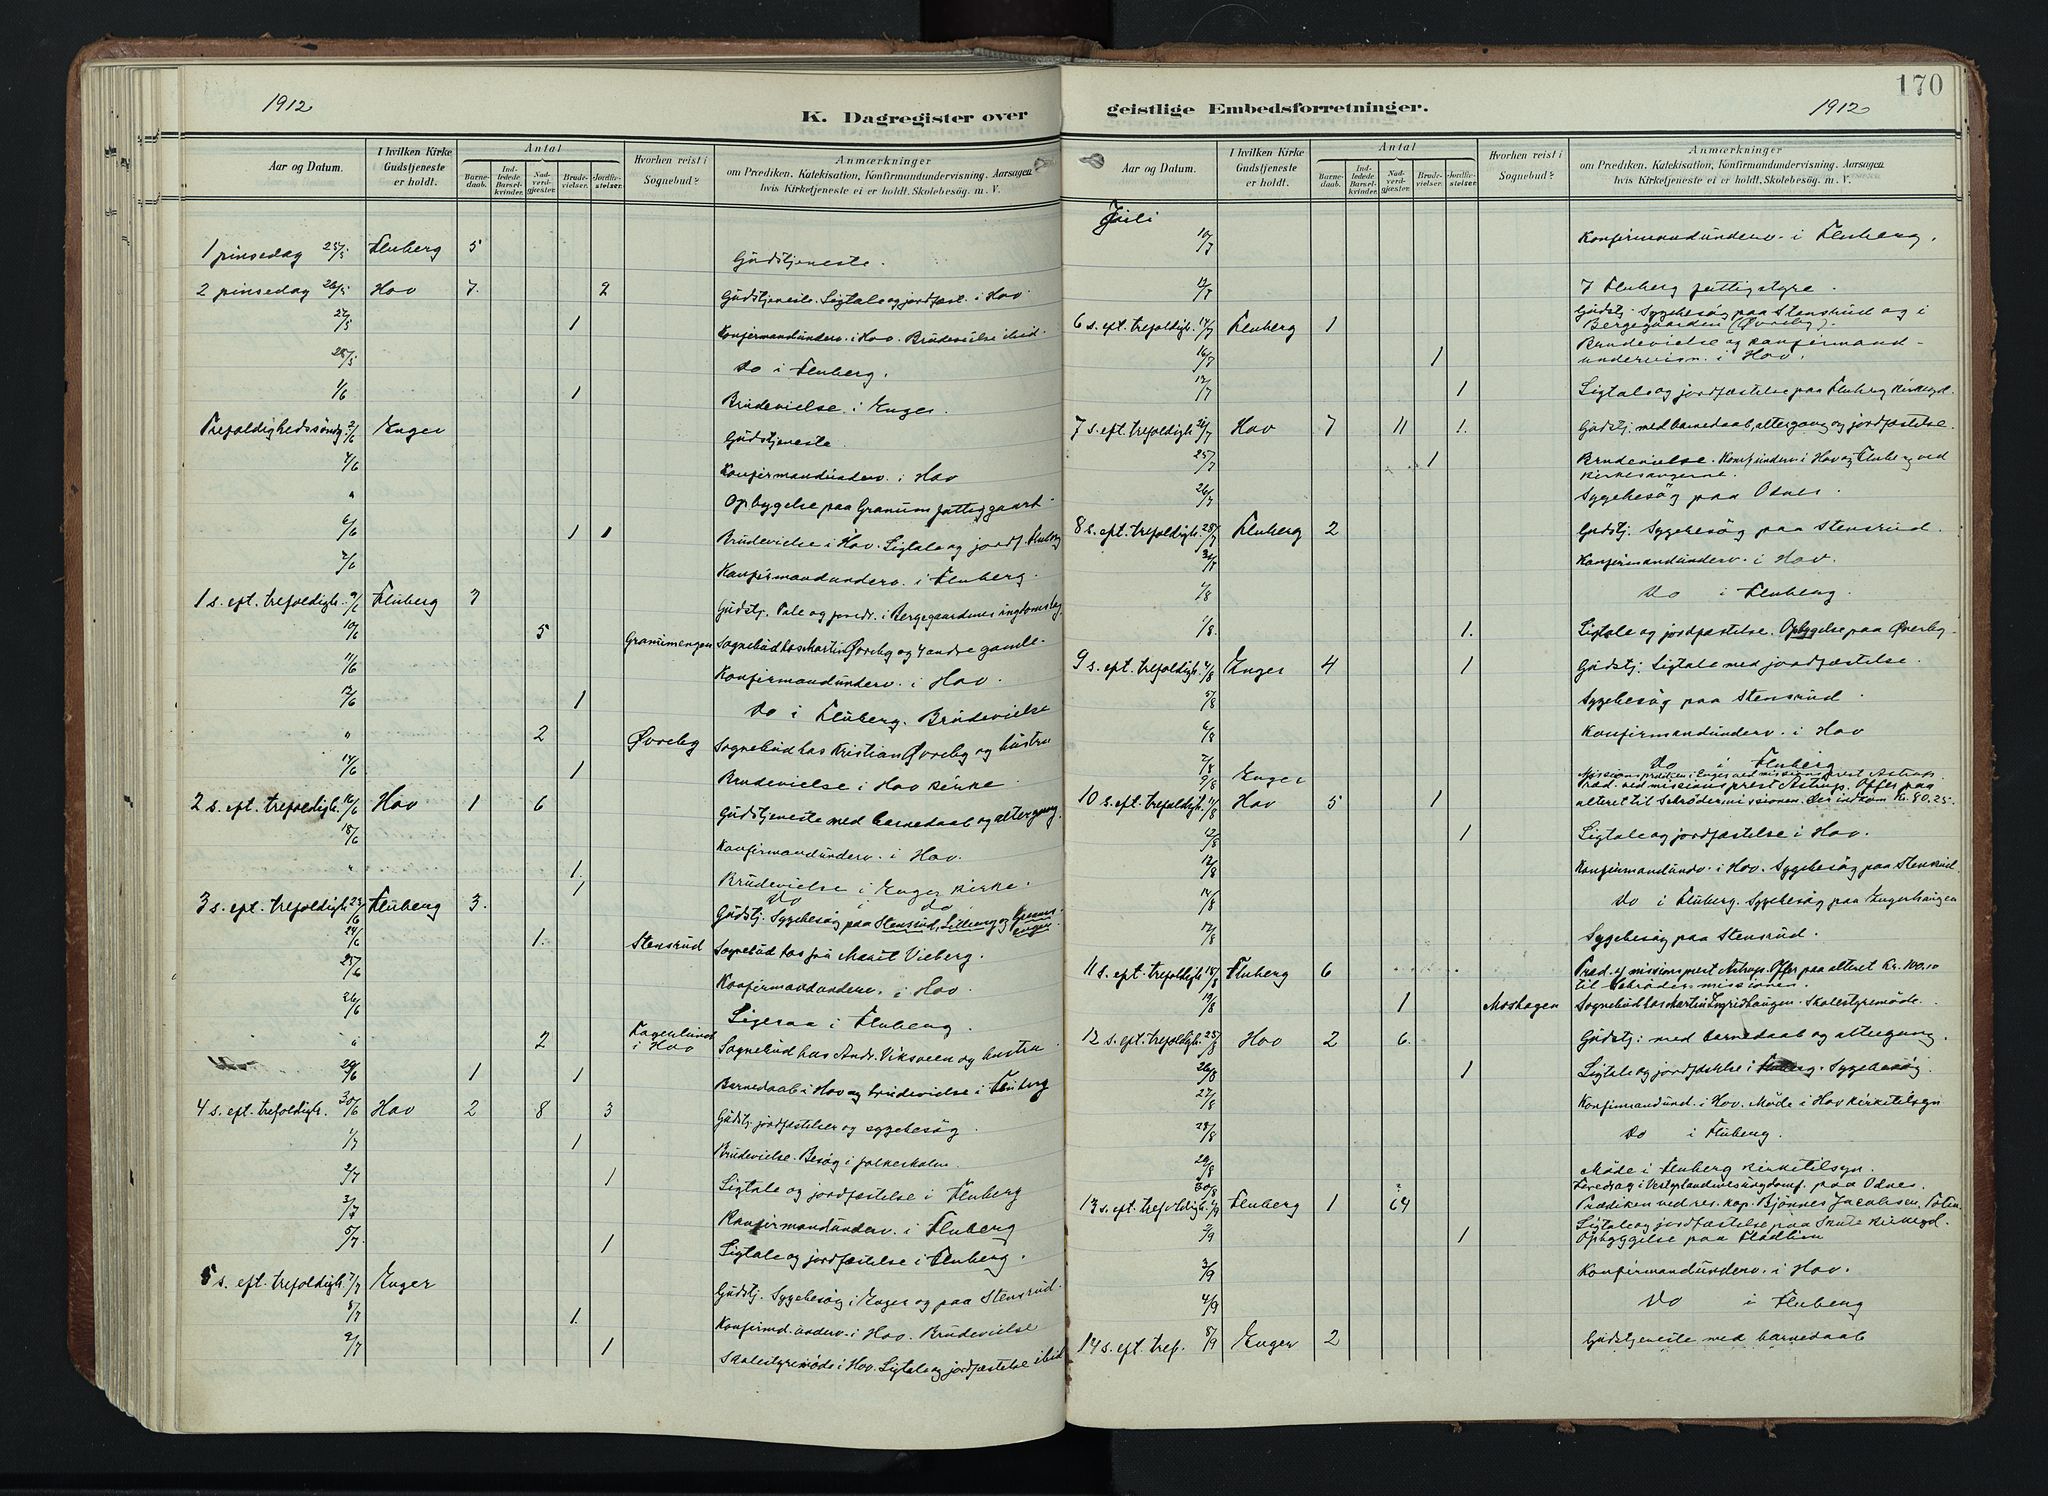 1912
K. Dagregister over
Aar og Datum. I hvilken Kirke Gudstjeneste er holdt. Antal Barnedaab. Indledede Barselkvinder. Nadverdgjæster. Brudevielser. Jordfæstelser. Hvorhen reist i Sognebud? Anmærkninger om Prædiken, Katekisation, Konfirmandundervisning. Aarsagen hvis Kirketjeneste ei er holdt. Skolebesøg. m. V.
1 pinsedag 25/5 Fluberg 5 Gudstjeneste.
2 pinsedag 26/5 Hov 7. 2 Gudstjeneste. Ligtale og jordfæst. i Hov
27/5 1 Konfirmandunderv. i Hov. Brudevielse ibid.
28/5 Do i Fluberg.
1/6 1 Brudevielse i Enger.
Trefoldighedssøndg. 2/6 Enger Gudstjeneste.
4/6 Konfirmandunderv. i Hov
" Opbyggelse paa Granum fattiggaard.
6/6 1 1 Brudevielse i Hov. Ligtale og jordf. Fluberg
7/6 Konfirmandunderv. i Fluberg.
1 s. eft. trefoldigh. 9/6 Fluberg 7 Gudstj. Tale og foredr. i Bergegaardenes ungdomslag
10/6 5 Granumengen Sognebud hos Martin Øvreby og 4 andre gamle.
11/6 Konfirmandunderv. i Hov.
13/6 1 Do i Fluberg. Brudevielse
" 2 Øvreby Sognebud hos Kristian Øvreby og hustru
14/6 1 Brudevielse i Hov kirke.
2 s. eft. trefoldigh. 16/6 Hov 1 6 Gudstjeneste med barnedaab og altergang.
18/6 Konfirmandunderv. i Hov.
" 1. Brudevielse i Enger kirke.
1 Do i do
3 s. eft. trefoldigh. 23/6 Fluberg 3. Gudstj. Sygebesøg paa Stensrud, Lilleeng og
24/6 1. Stensrud Sognebud hos fru Marit Vieberg.
25/6 Konfirmandunderv. i Hov.
26/6 i Fluberg.
" 2 Fagerlund i Hov Sognebud hos Andr. Viksveen og hustru
29/6 1 1 Barnedaab i Hov og brudevielse i Fluberg
4 s. eft. trefoldigh. 30/6 Hov 2 8 3 Gudstj. jordfæstelser og sygebesøg.
1/7 1 Brudevielse. Besøg i folkeskolen.
2/7 1 Ligtale og jordfæstelse i Fluberg
3/7 Konfirmandunderv. i Fluberg
5/7. 1 Ligtale og jordfæstelse i Fluberg.
5 s. eft. trefoldigh. 7/7 Enger Gudstj. Sygebesøg i Enger og paa Stensrud.
8/7 1. Konfirmd. underv. i Hov. Brudevielse
9/7 1 Skolestyremøde i Hov. Ligtale og jordfæstelse ibid
170
geistlige Embedsforretninger. 1912
Aar og Datum. I hvilken Kirke Gudstjeneste er holdt. Antal Barnedaab. Indledede Barselkvinder. Nadverdgjæster. Brudevielser. Jordfæstelser. Hvorhen reist i Sognebud? Anmærkninger om Prædiken, Katekisation, Konfirmandundervisning. Aarsagen hvis Kirketjeneste ei er holdt. Skolebesøg. m. V.
Juli
10/7 Konfirmandunderv. i Fluberg.
12/7 I Fluberg fattigstyre.
6 s. eft. trefoldigh. 14/7 Fluberg 1 Gudstj. Sygebesøg paa Stensrud og i Bergegaarden (Øvreby).
16/7 1 Brudevielse og konfirmandundervisn. i Hov.
17/7 1 Ligtale og jordfæstelse paa Fluberg kirkegd.
7 s. eft. trefoldigh. 21/7 Hov 7 11 1. Gudstj. med barnedaab, altergang og jordfæstelse.
25/7 1 Brudevielse. Konf.underv. i Hov og Fluberg ved kirkesangerne.
26/7 Sygebesøg paa Odnes.
8 s. eft. trefoldigh. 28/7 Fluberg 2 Gudstj. Sygebesøg paa Stensrud.
Konfirmandunderv. i Hov.
1/8 Do i Fluberg.
1/8. 1. Ligtale og jordfæstelse. Opbyggelse paa Øvreby.
9 s. eft. trefoldigh. 4/8 Enger 4 1 Gudstj. Ligtale med jordfæstelse.
5/8 Sygebesøg paa Stensrud.
6/8 Konfirmandunderv. i Hov
7/8 Do i Fluberg
9/8 Enger Missionsprædiken i Enger ved missionsprest Astrup.
10 s. eft. trefoldigh. 11/8 Hov 5 1 Præd. ved missionsprest Astrup. Offer paa alteret til Schrødermissionen. Der indkom Kr. 90.25.
12/8 1 Ligtale og jordfæstelse i Hov.
12/8 Konfirmandundv. i Hov. Sygebesøg paa Stensrud.
14/8 Do i Fluberg. Sygebesøg paa Engerhaugen
17/8 Sygebesøg paa Stensrud.
11 s. eft. trefoldigh. 18/8 Fluberg 6 Præd. af missionsprest Astrup. Offer paa alteret Kr. 100.10 til Schrøders missionen.
19/8 1 Moshagen Sognebud hos Martin Engridhaugen. Skolestyremøde.
12 s. eft. trefoldigh. 25/8 Hov 2 6. Gudstj. med barnedaab og altergang.
26/8 1 Ligtale og jordfæstelse i Sygebesøg.
27/8 Konfirmandund. i Hov. Møde i Hov kirketilsyn
28/8 Do i Fluberg.
29/8 Møde i Fluberg kirketilsyn.
30/8 Foredrag i Vestoplandenes ungdomsf. paa Odnes.
13 s. eft. trefoldigh. 1/9 Fluberg 1 64 Prædiken ved res. kap. Bjønnes Jacobsen, Toten.
2/9 1 Ligtale og jordfæstelse paa Skute kirkegd. Opbyggelse paa Fladlien
3/9 Konfirmandunderv. i Hov.
4/9 Do i Fluberg
14 s. eft. tref. 8/9 Enger 2 Gudstjeneste med barnedaab